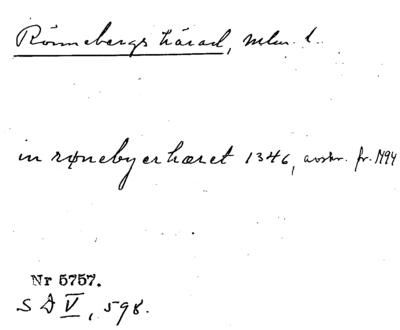 Rönnebergs härad, Mlm. l.
in rønebyerhæret 1346, avskr. fr. 1494
Nr 5757.
SD V, 598.